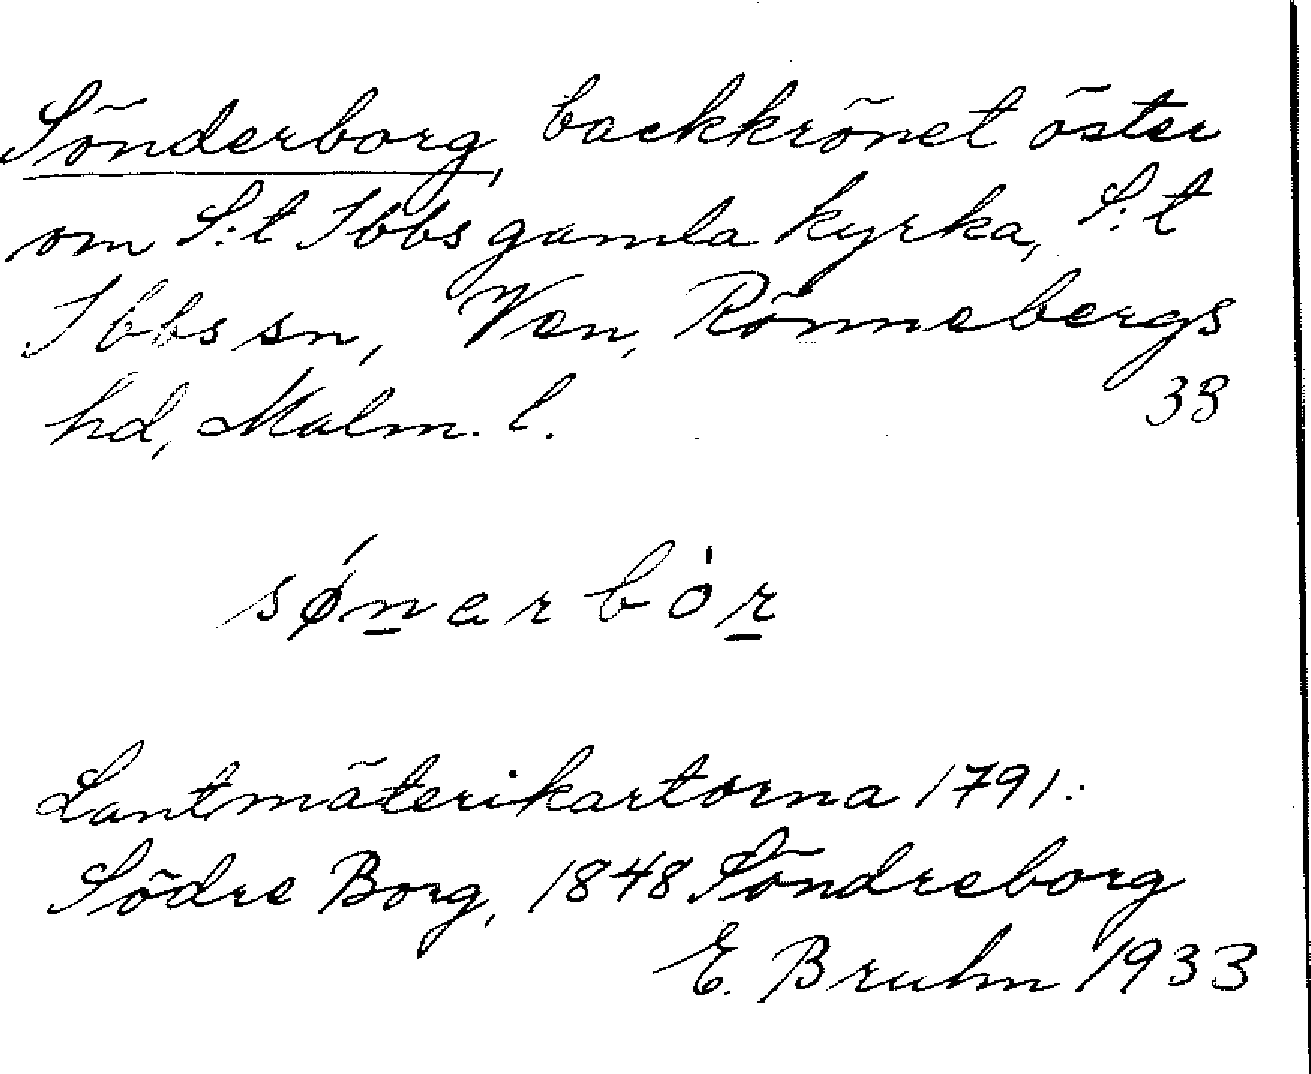 Sönderborg, backkrönet öster
om S:t Ibbs gamla kyrka, S:t
Ibbs sn, Ven, Rönnebergs
hd, Malm. l. 33
sǿn̲arbór̲
Lantmäterikartorna 1791:
Södre Borg, 1848 Söndreborg
E. Bruhn 1933